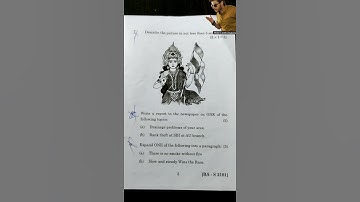 Describe the picture in not less than 5 sen
Write a report to the newspaper on ONE of the
following topics: (5)
(a) Drainage problems of your area.
(b) Bank theft at SBI at AU branch.
Expand ONE of the following into a paragraph. (5)
(a) There is no smoke without fire
(b) Slow and steady Wins the Race.